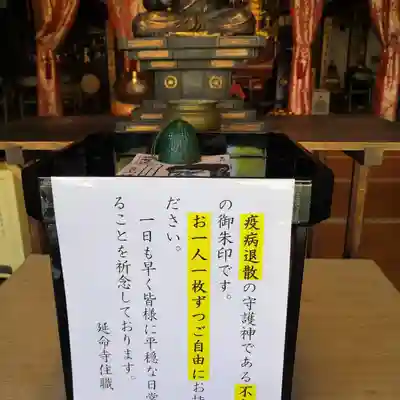 疫病退散の守護神である不
の御朱印です。
お一人一枚ずつご自由にお
ださい。
一日も早く皆様に平穏な日常
ることを祈念しております。
延命寺住職